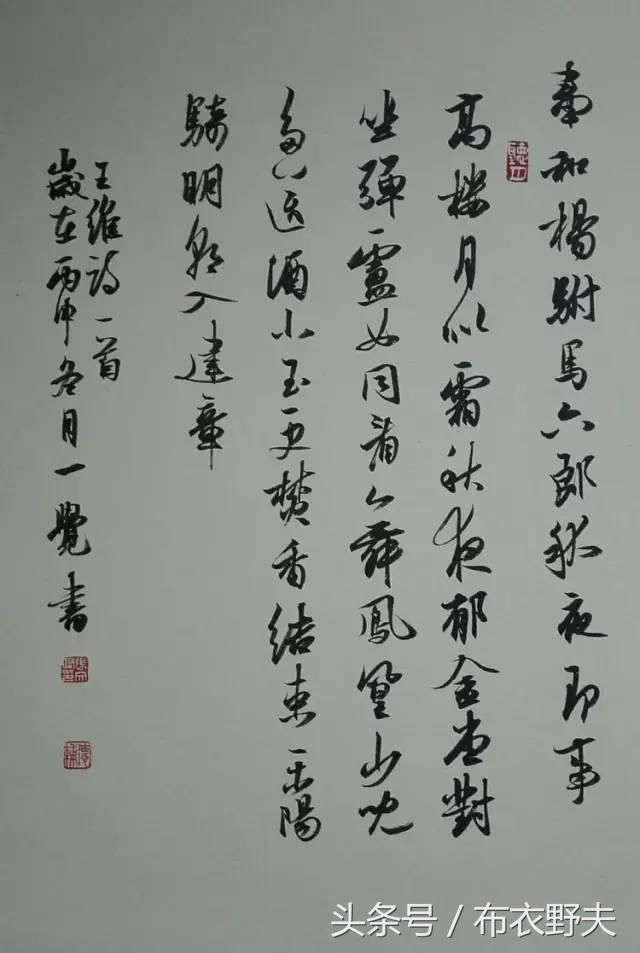 奉和楊駙馬六郎秋夜即事
高樓月似霜秋夜郁金堂對
坐彈盧女同看舞鳳凰少兒
多送酒小玉更焚香結束平陽
騎明朝入建章
王維詩一首
歲在丙申冬月一覺書
头条号 / 布衣野夫